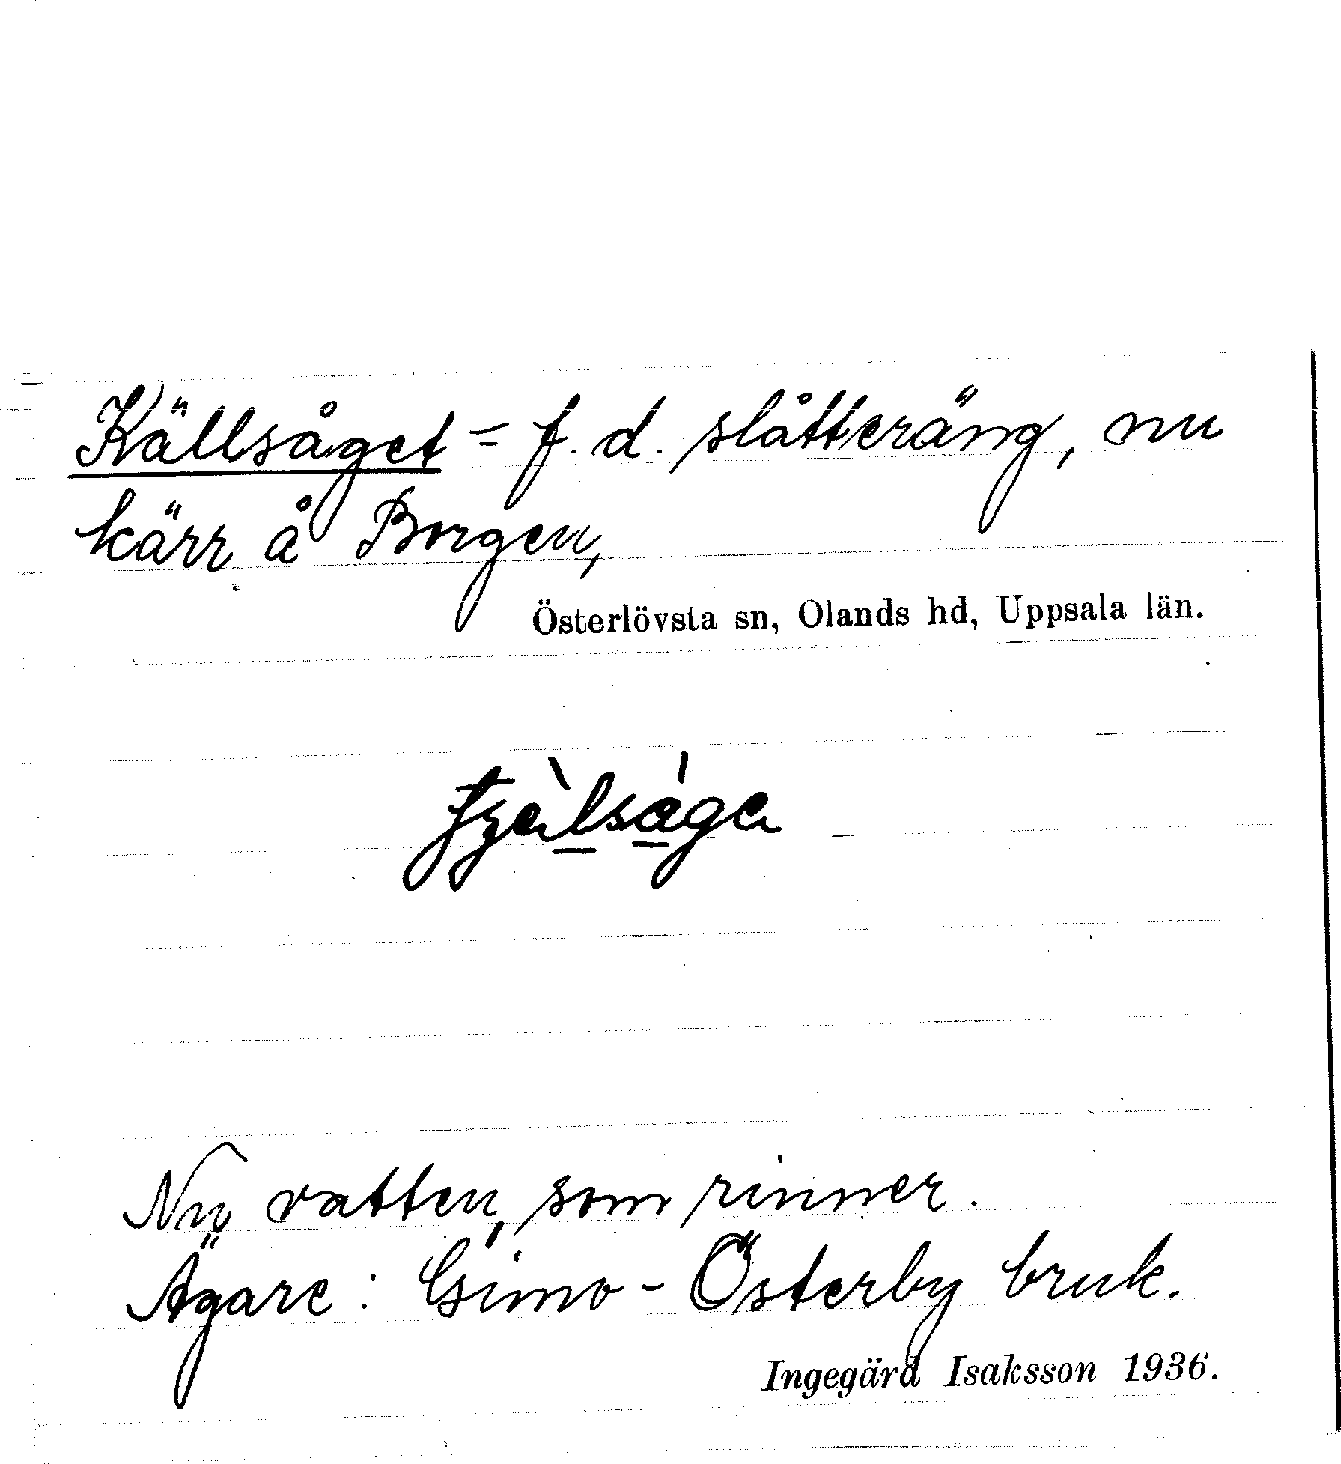 Källsåget = f.d. slåtteräng, nu
kärr å Borgen,
Österlövsta sn, Olands hd, Uppsala län.
Nu vatten, som rinner.
Ägare: Gimo-Österby bruk.
Ingegärd Isaksson 1936.